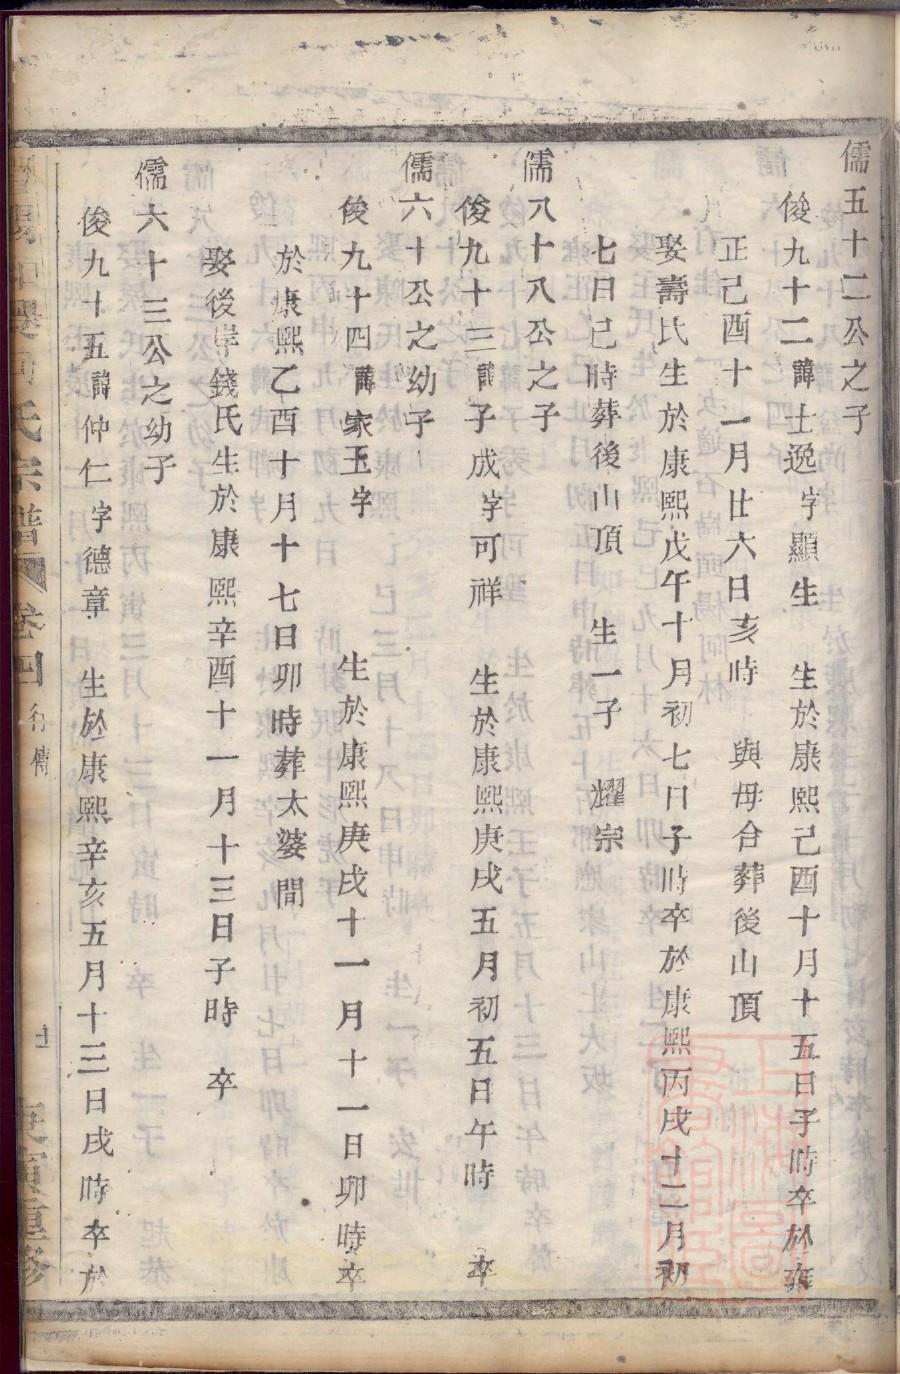 儒五十二公之子
俊九十二諱士逸字顯生 生於康熙己酉十月十五日子時卒於雍
正己酉十一月廿六日亥時 與母合葬後山頂
娶壽氏生於康熙戊午十月初七日子時卒於康熙丙戌十二月初
七日巳時葬後山頂 生一子 耀宗
儒八十八公之子
俊九十三諱子成字可祥 生於康熙庚戌五月初五日午時 卒
儒六十公之幼子
俊九十四諱家玉字 生於康熙庚戌十一月十一日卯時卒
於康熙乙酉十月十七日卯時葬太婆間
娶後岸錢氏生於康熙辛酉十一月十三日子時 卒
儒六十三公之幼子
俊九十五諱仲仁字德章 生於康熙辛亥五月十三日戌時卒於
氏宗譜 卷四 行傳 重修